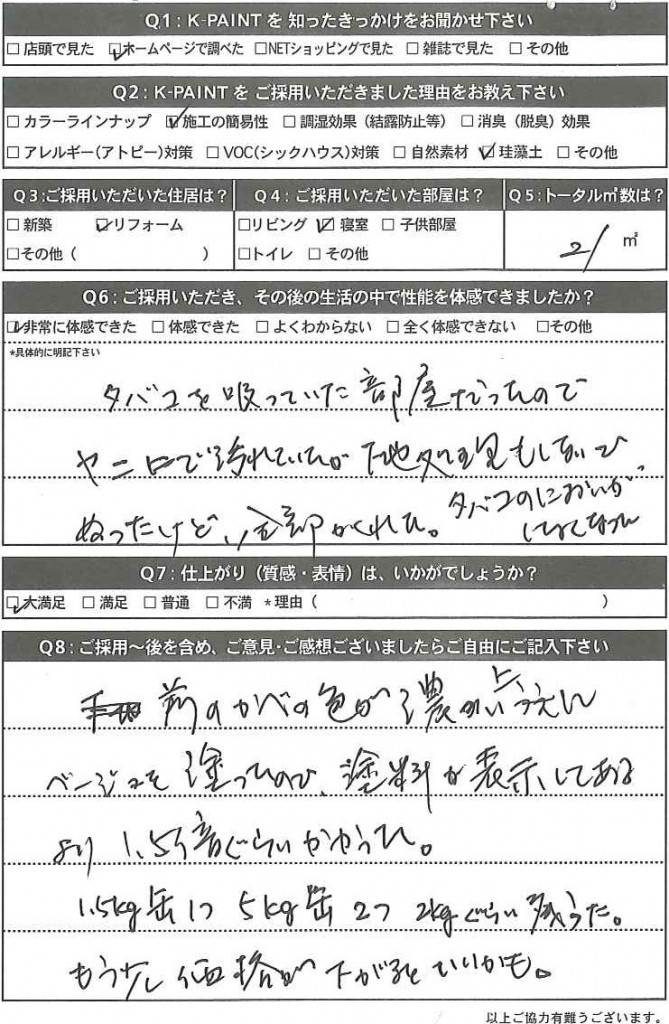 Q1：K-PAINTを 知ったきっかけをお聞かせ下さい
□店頭で見た ☑ホームページで調べた □NETショッピングで見た □雑誌で見た □その他
Q2：K-PAINTを ご採用いただきました理由をお教え下さい
□カラーラインナップ ☑施工の簡易性 □調湿効果（結露防止等） □消臭（脱臭）効果
□アレルギー(アトピー)対策 □VOC(シックハウス)対策 □自然素材 ☑珪藻土 □その他
Q3:ご採用いただいた住居は？ Q4：ご採用いただいた部屋は？ Q5：トータル㎡数は？
□新築 ☑リフォーム □リビング ☑寝室 □子供部屋 21 ㎡
□その他（ ） □トイレ □その他
Q6：ご採用いただき、その後の生活の中で性能を体感できましたか？
☑非常に体感できた □体感できた □よくわからない □全く体感できない □その他
*具体的に明記下さい
タバコを吸っていた部屋だったので
ヤニで汚れていたが下地処理もしないで
ぬったけど、全部かくれた。タバコのにおいが
しなくなった
Q7：仕上がり（質感・表情）は、いかがでしょうか？
☑大満足 □満足 □普通 □不満 *理由（ ）
Q8：ご採用〜後を含め、ご意見・ご感想ございましたらご自由にご記入下さい
前のかべの色が濃かい上うえに
ベージュを塗ったので、塗料が表示してある
より1.5倍ぐらいかかった。
1.5kg缶1つ 5kg缶2つ 2kgぐらい残った。
もう少し価格が下がるといいかも。
以上ご協力有難うございます。